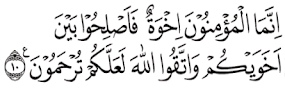 اِنَّمَا الْمُؤْمِنُوْنَ اِخْوَةٌ فَاَصْلِحُوْا بَيْنَ
اَخَوَيْكُمْ وَاتَّقُوا اللّٰهَ لَعَلَّكُمْ تُرْحَمُوْنَ ࣖ ١٠